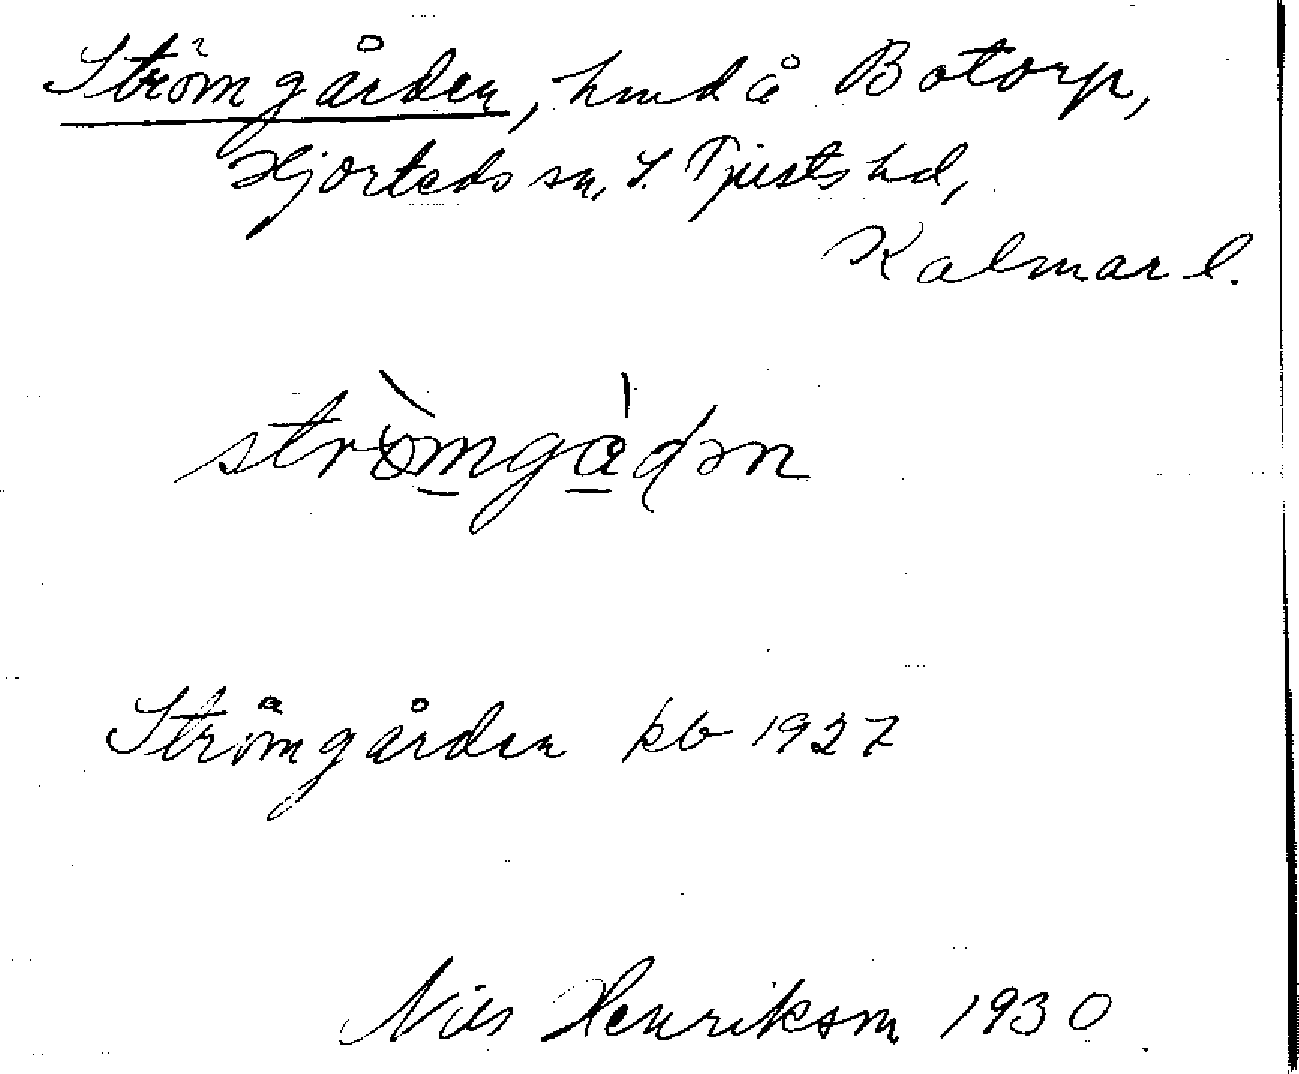 Strömgården, hmd å Botorp,
Hjorteds sn, S. Tjusts hd,
Kalmar l.
strò̀mgàdən
Strömgården kb 1927
Nils Henrikson 1930